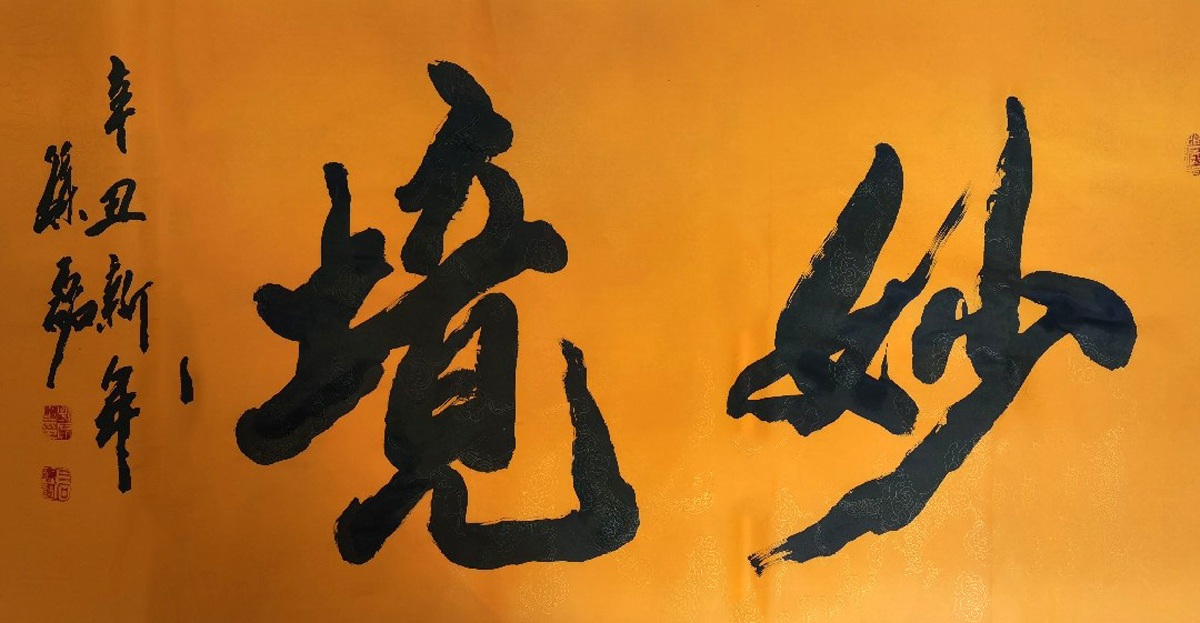 妙境
辛丑新年
孫磊